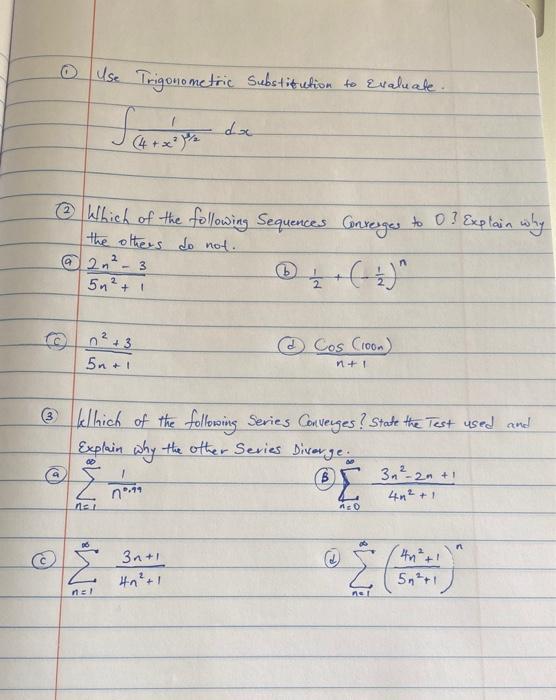 ① Use Trigonometric Substitution to Evaluate.
∫ 1/(4 + x²)^3/2 dx
② Which of the following Sequences Converges to 0? Explain why
the others do not.
ⓐ (2n² - 3)/(5n² + 1) ⓑ 1/2 + (-1/2)^n
ⓒ (n² + 3)/(5n + 1) ⓓ Cos(100n)/(n+1)
③ Which of the following Series Converges? State the Test used and
Explain why the other Series Diverge.
ⓐ ∞ Σ n=1 1/n^0.99 Ⓑ ∞ Σ n=0 (3n² - 2n + 1)/(4n² + 1)
ⓒ ∞ Σ n=1 (3n+1)/(4n²+1) ⓓ ∞ Σ n=1 ((4n²+1)/(5n²+1))^n